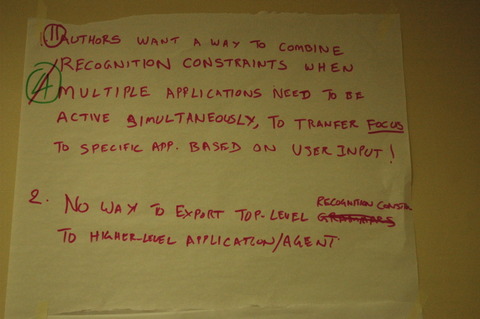 1. 11 AUTHORS WANT A WAY TO COMBINE
RECOGNITION CONSTRAINTS WHEN
4 MULTIPLE APPLICATIONS NEED TO BE
ACTIVE SIMULTANEOUSLY, TO TRANFER FOCUS
TO SPECIFIC APP. BASED ON USER INPUT!
RECOGNITION CONSTR
2. NO WAY TO EXPORT TOP-LEVEL GRAMMARS
TO HIGHER-LEVEL APPLICATION/AGENT.